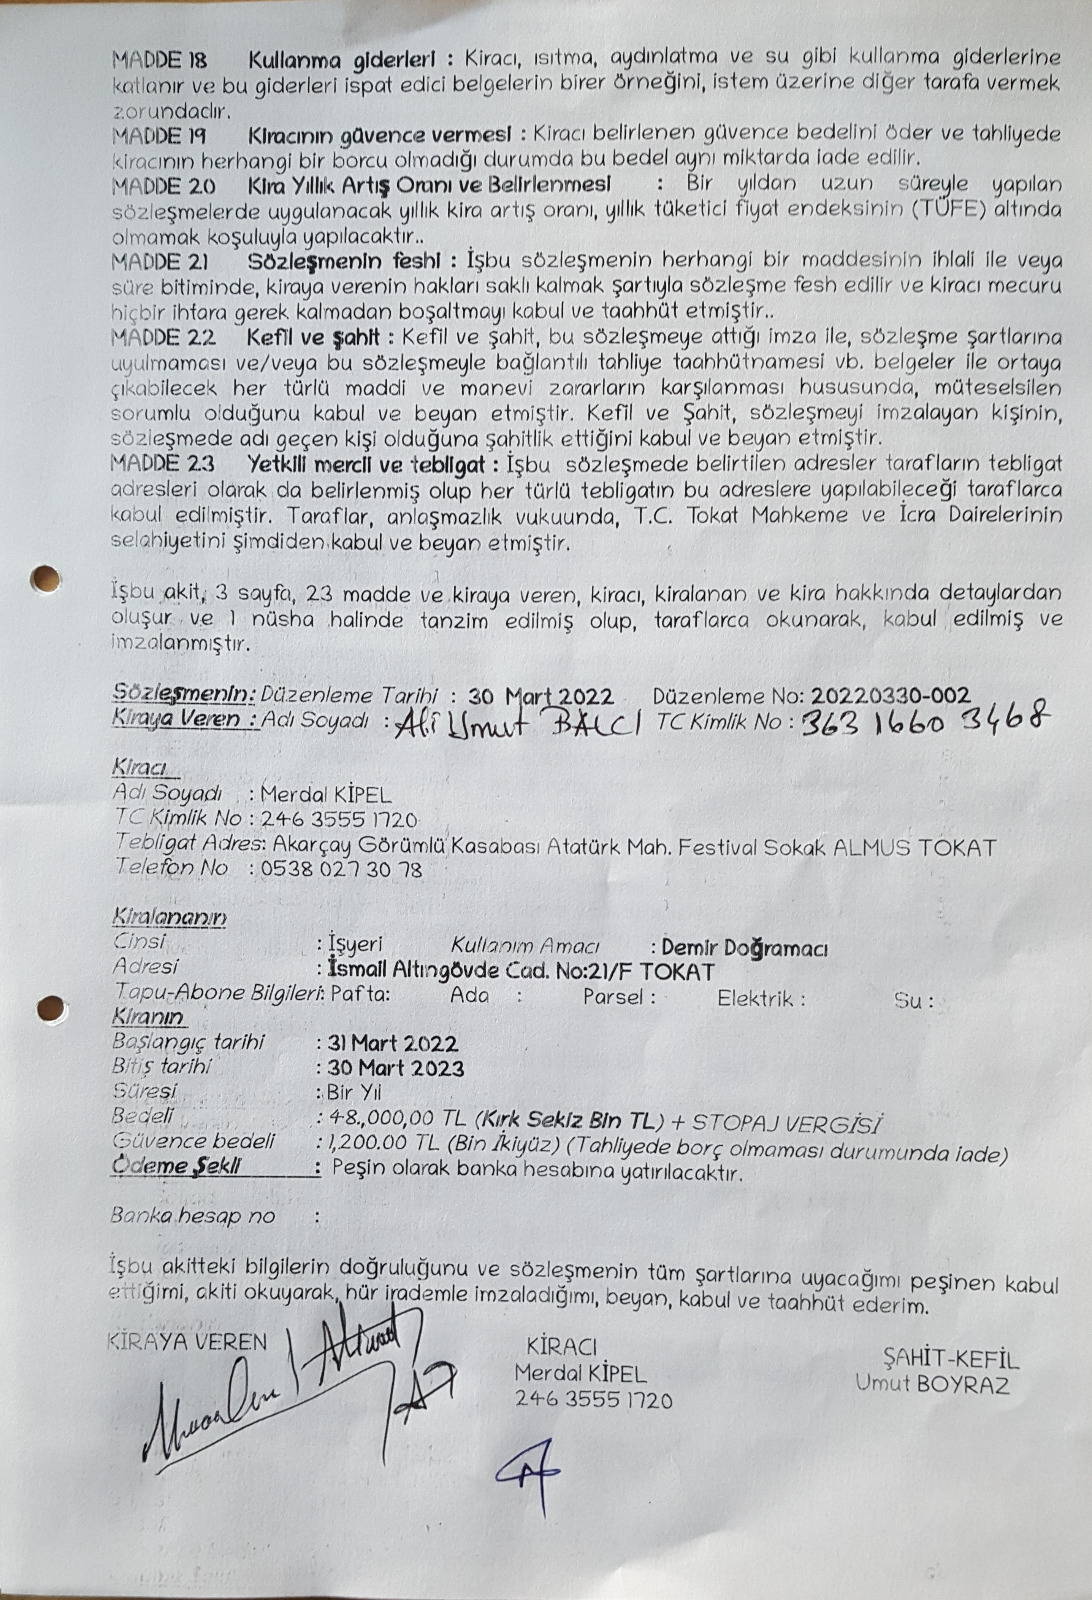 MADDE 18 Kullanma giderleri : Kiracı, ısıtma, aydınlatma ve su gibi kullanma giderlerine
katlanır ve bu giderleri ispat edici belgelerin birer örneğini, istem üzerine diğer tarafa vermek
zorundadır.
MADDE 19 Kiracının güvence vermesi : Kiracı belirlenen güvence bedelini öder ve tahliyede
kiracının herhangi bir borcu olmadığı durumda bu bedel aynı miktarda iade edilir.
MADDE 20 Kira Yıllık Artış Oranı ve Belirlenmesi : Bir yıldan uzun süreyle yapılan
sözleşmelerde uygulanacak yıllık kira artış oranı, yıllık tüketici fiyat endeksinin (TÜFE) altında
olmamak koşuluyla yapılacaktır..
MADDE 21 Sözleşmenin feshi : İşbu sözleşmenin herhangi bir maddesinin ihlali ile veya
süre bitiminde, kiraya verenin hakları saklı kalmak şartıyla sözleşme fesh edilir ve kiracı mecuru
hiçbir ihtara gerek kalmadan boşaltmayı kabul ve taahhüt etmiştir..
MADDE 22 Kefil ve şahit : Kefil ve şahit, bu sözleşmeye attığı imza ile, sözleşme şartlarına
uyulmaması ve/veya bu sözleşmeyle bağlantılı tahliye taahhütnamesi vb. belgeler ile ortaya
çıkabilecek her türlü maddi ve manevi zararların karşılanması hususunda, müteselsilen
sorumlu olduğunu kabul ve beyan etmiştir. Kefil ve Şahit, sözleşmeyi imzalayan kişinin,
sözleşmede adı geçen kişi olduğuna şahitlik ettiğini kabul ve beyan etmiştir.
MADDE 23 Yetkili mercii ve tebligat : İşbu sözleşmede belirtilen adresler tarafların tebligat
adresleri olarak da belirlenmiş olup her türlü tebligatın bu adreslere yapılabileceği taraflarca
kabul edilmiştir. Taraflar, anlaşmazlık vukuunda, T.C. Tokat Mahkeme ve İcra Dairelerinin
selahiyetini şimdiden kabul ve beyan etmiştir.
İşbu akit, 3 sayfa, 23 madde ve kiraya veren, kiracı, kiralanan ve kira hakkında detaylardan
oluşur ve 1 nüsha halinde tanzim edilmiş olup, taraflarca okunarak, kabul edilmiş ve
imzalanmıştır.
Sözleşmenin: Düzenleme Tarihi : 30 Mart 2022 Düzenleme No: 20220330-002
Kiraya Veren : Adı Soyadı : Ali Umut BALCI TC Kimlik No : 363 1660 3468
Kiracı
Adı Soyadı : Merdal KİPEL
TC Kimlik No : 246 3555 1720
Tebligat Adres: Akarçay Görümlü Kasabası Atatürk Mah. Festival Sokak ALMUS TOKAT
Telefon No : 0538 027 30 78
Kiralananın
Cinsi : İşyeri Kullanım Amacı : Demir Doğramacı
Adresi : İsmail Altıngövde Cad. No:21/F TOKAT
Tapu-Abone Bilgileri: Pafta: Ada : Parsel : Elektrik : Su :
Kiranın
Başlangıç tarihi : 31 Mart 2022
Bitiş tarihi : 30 Mart 2023
Süresi : Bir Yıl
Bedeli : 48,000,00 TL (Kırk Sekiz Bin TL) + STOPAJ VERGİSİ
Güvence bedeli : 1,200.00 TL (Bin İkiyüz) (Tahliyede borç olmaması durumunda iade)
Ödeme Şekli : Peşin olarak banka hesabına yatırılacaktır.
Banka hesap no :
İşbu akitteki bilgilerin doğruluğunu ve sözleşmenin tüm şartlarına uyacağımı peşinen kabul
ettiğimi, akiti okuyarak, hür irademle imzaladığımı, beyan, kabul ve taahhüt ederim.
KİRAYA VEREN KİRACI ŞAHİT-KEFİL
Merdal KİPEL Umut BOYRAZ
246 3555 1720